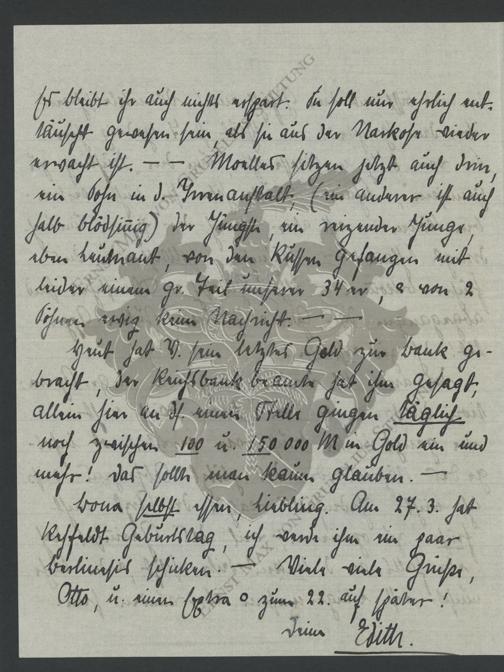 Es bleibt ihr auch nichts erspart. Sie soll nur ehrlich ent-
täuscht gewesen sein, als sie aus der Narkose wieder
erwacht ist. — — Moelles sitzen jetzt auch drin,
ein Sohn in d. Irrenanstalt, (ein anderer ist auch
halb blödsinnig) der Jüngste, ein reizender Junge
eben Leutnant, von den Russen gefangen mit
leider einem gr. Teil unserer 34 er, & von 2
Söhnen ewig keine Nachricht. — —
Heut hat V. sein letztes Gold zur Bank ge-
bracht, der Reichsbankbeamte hat ihm gesagt,
allein hier an d. einen Stelle gingen täglich
noch zwischen 100 u. 150 000 M in Gold ein und
mehr! Das sollte man kaum glauben. —
selbst essen, Liebling. Am 27. 3. hat
Rehfeldt Geburtstag, ich werde ihm ein paar
schicken. — Viele viele Grüsse,
Otto, u. einen Extra o zum 22. auf später!
Deine Edith.
ERNST MAX VON GRUNELIUS-STIFTUNG